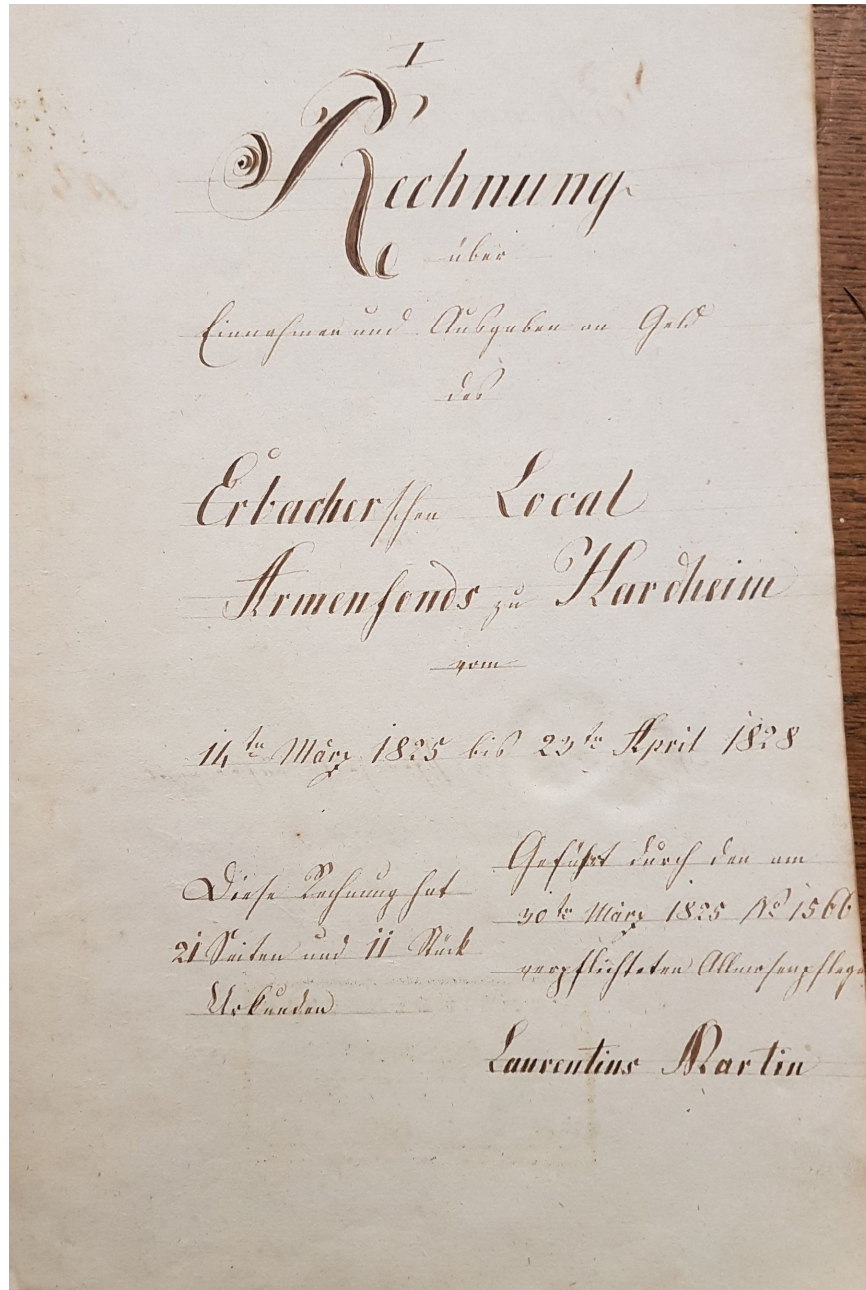 I
Rechnung
über
Einnahmen und Ausgaben an Geld
des
Erbacherschen Local
Armenfonds zu Hardheim
vom
14ten März 1825 bis 23ten April 1828
Diese Rechnung hat
21 Seiten und 11 Stück
Urkunden
Geführt durch den am
30ten März 1825 No 1566
verpflichteten Allmosenpfleger
Laurentius Martin